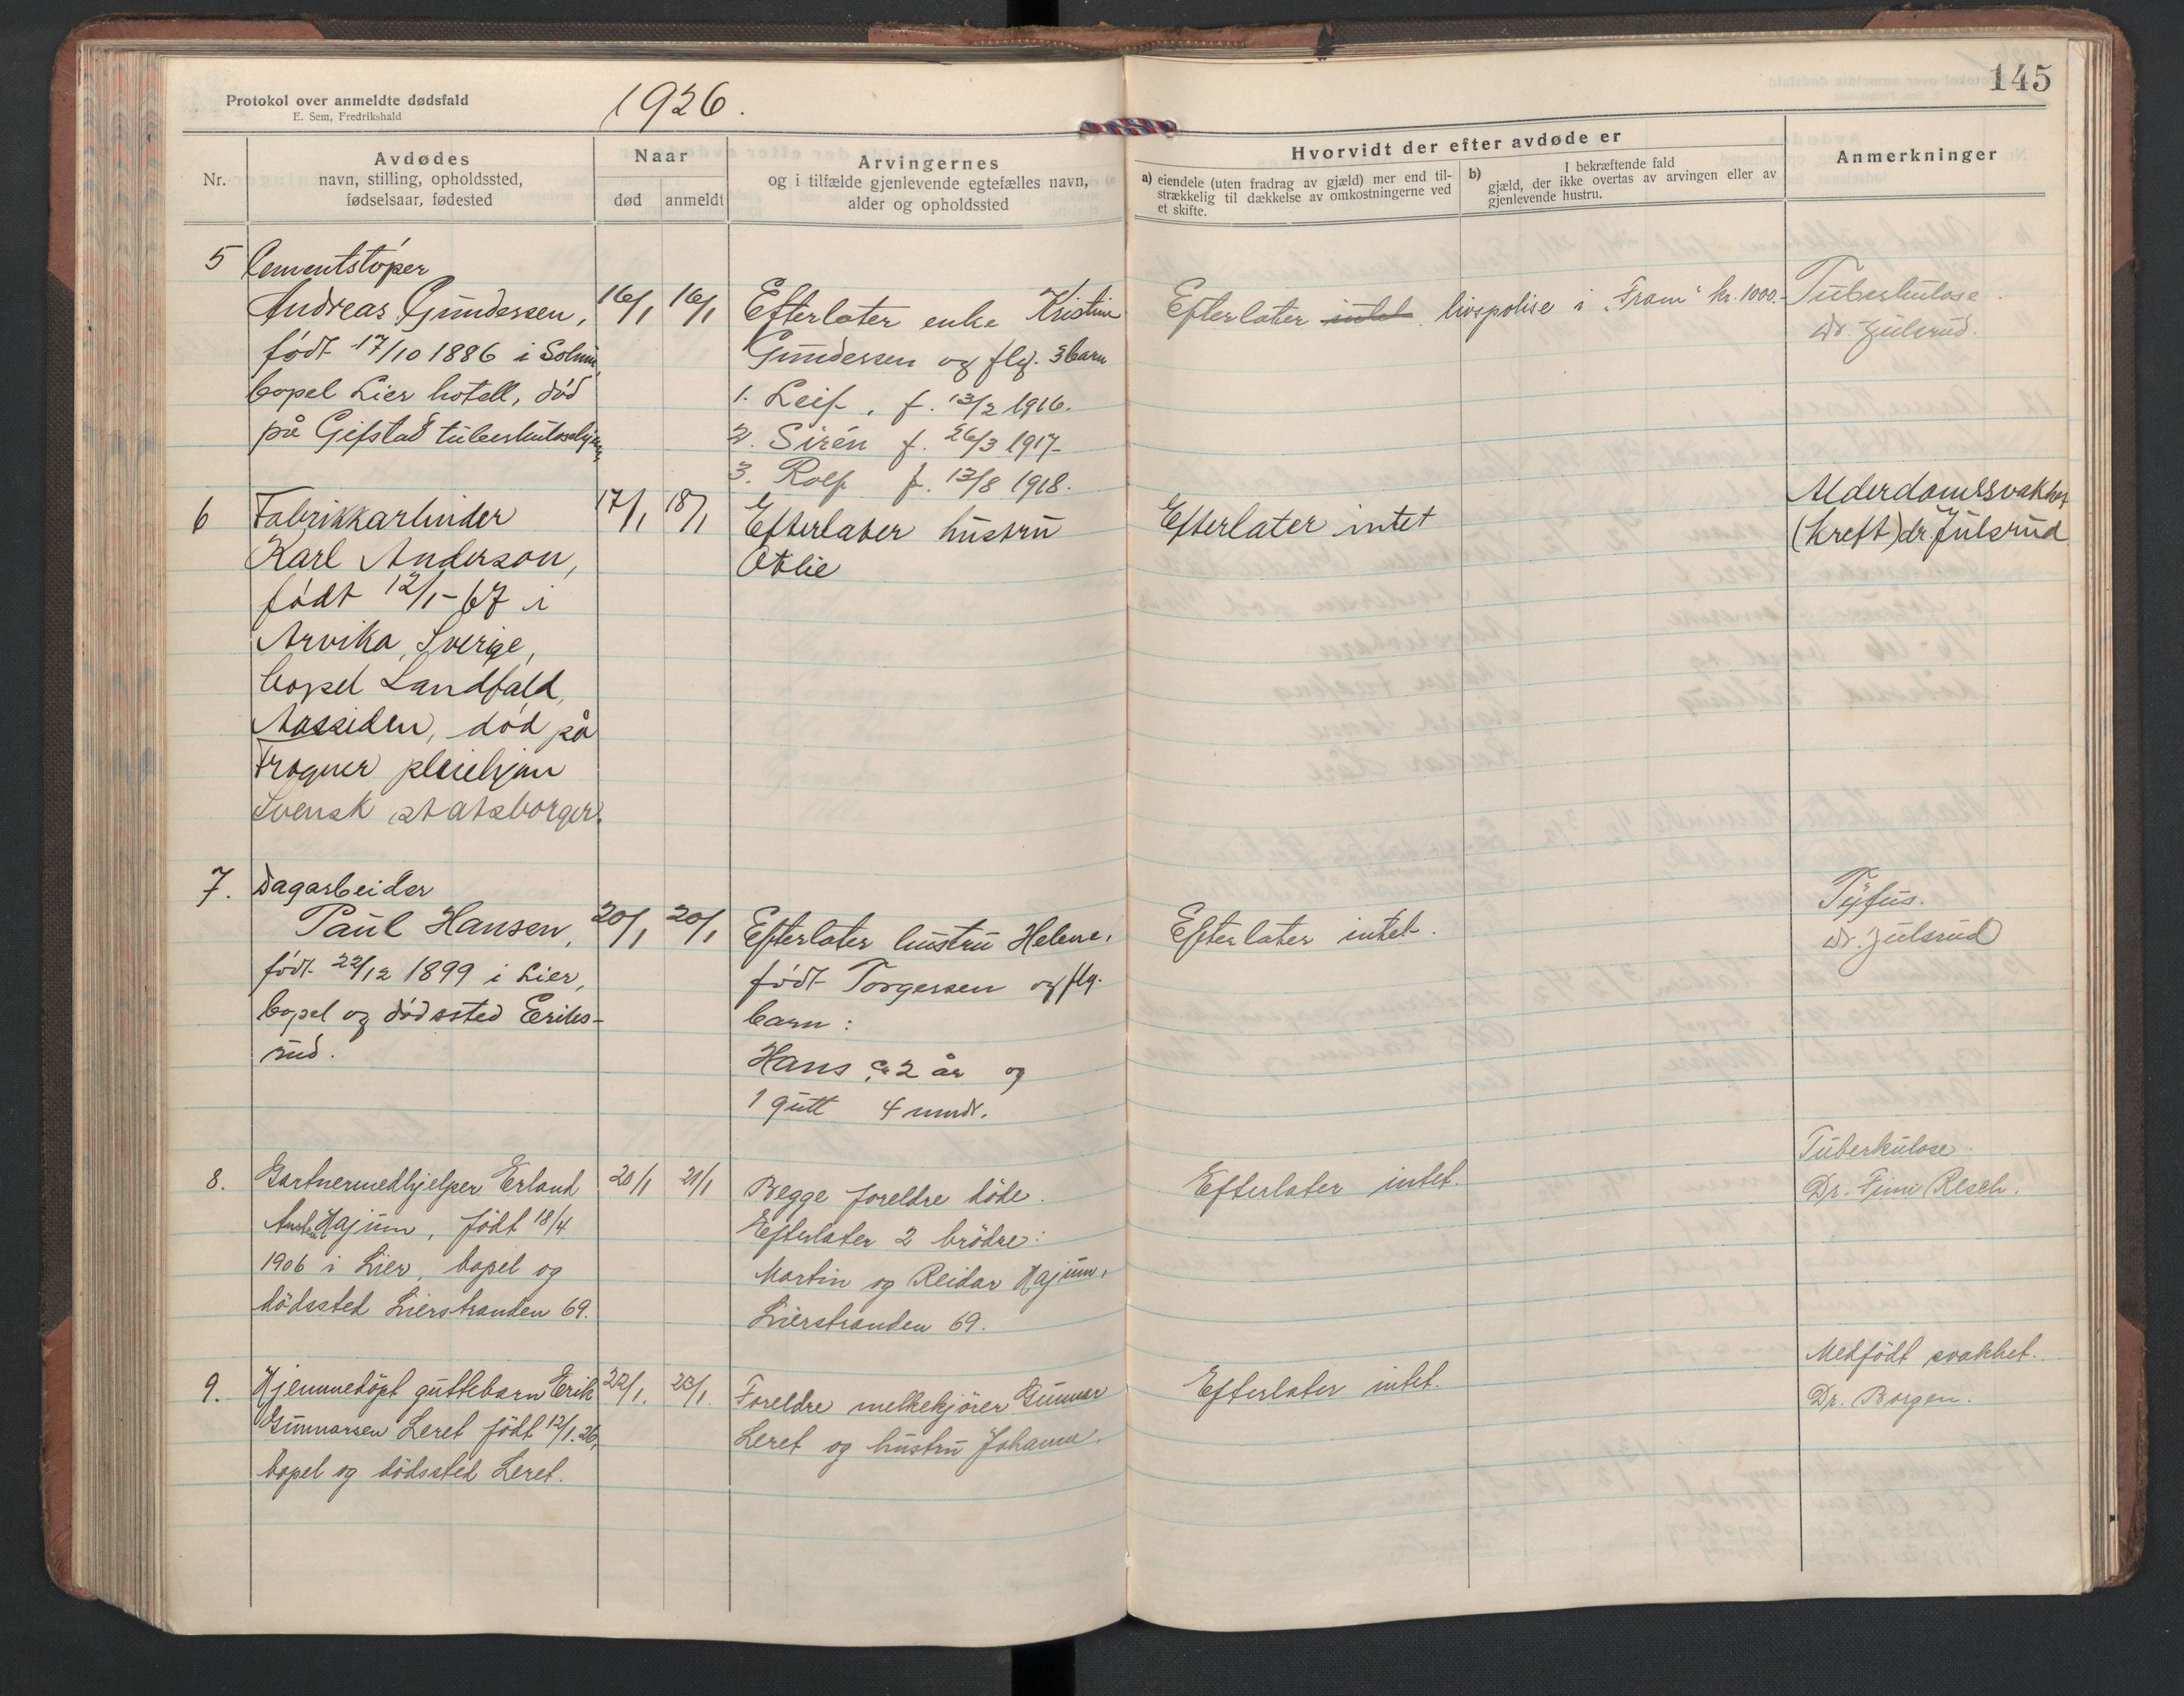 Protokol over anmeldte dødsfald
E. Sem, Fredrikshald
1926.
145
Nr.
Avdødes
navn, stilling, opholdssted,
fødselsaar, fødested
Naar
død
anmeldt
Arvingernes
og i tilfælde gjenlevende egtefælles navn,
alder og opholdssted
Hvorvidt der efter avdøde er
a) eiendele (uten fradrag av gjæld) mer end til-
strækkelig til dækkelse av omkostningerne ved
et skifte.
b) I bekræftende fald
gjæld, der ikke overtas av arvingen eller av
gjenlevende hustru.
Anmerkninger
5
Cementstøper
Andreas Gundersen,
født 17/10 1886 i Solum,
bopel Lier hotell, død
på Gifstad tuberkulosehjem,
16/1
16/1
Efterlater enke Kristine
Gundersen og flg. 3 barn
1. Leif, f. 13/2 1916.
2. Sirén f. 26/3 1917
3. Rolf f. 13/8 1918.
Efterlater intet livspolise i "Fram" kr. 1000.-
Tuberkulose.
Dr. Julsrud.
6
Fabrikkarbeider
Karl Anderson,
født 12/1-67 i
Arvika, Sverige,
bopel Landfald,
Aassiden, død på
Frogner pleiehjem
Svensk statsborger.
17/1
18/1
Efterlater hustru
Otilie
Efterlater intet
Alderdomssvakhet
(kreft) dr. Julsrud
7.
Dagarbeider
Paul Hansen,
født 22/12 1899 i Lier,
bopel og dødssted Eriks-
rud.
20/1
20/1
Efterlater hustru Helene,
født Torgersen og flg.
barn:
Hans ca 2 år og
1 gutt 4 mndr.
Efterlater intet.
Tyfus.
Dr. Julsrud
8.
Gartnermedhjelper Erland
Hajum, født 18/4
1906 i Lier, bopel og
dödssted Lierstranden 69.
20/1
21/1
Begge foreldre döde.
Efterlater 2 brödre:
Martin og Reidar Hajum,
Lierstranden 69.
Efterlater intet.
Tuberkulose.
Dr. Resch.
9.
Hjemmedöpt guttebarn Erik
Gunnarsen Leret født 12/1.26,
bopel og dödssted Leret.
22/1.
23/1.
Foreldre melkekjörer Gunnar
Leret og hustru Johanne.
Efterlater intet.
Medfödt svakhet.
Dr. Borgen.